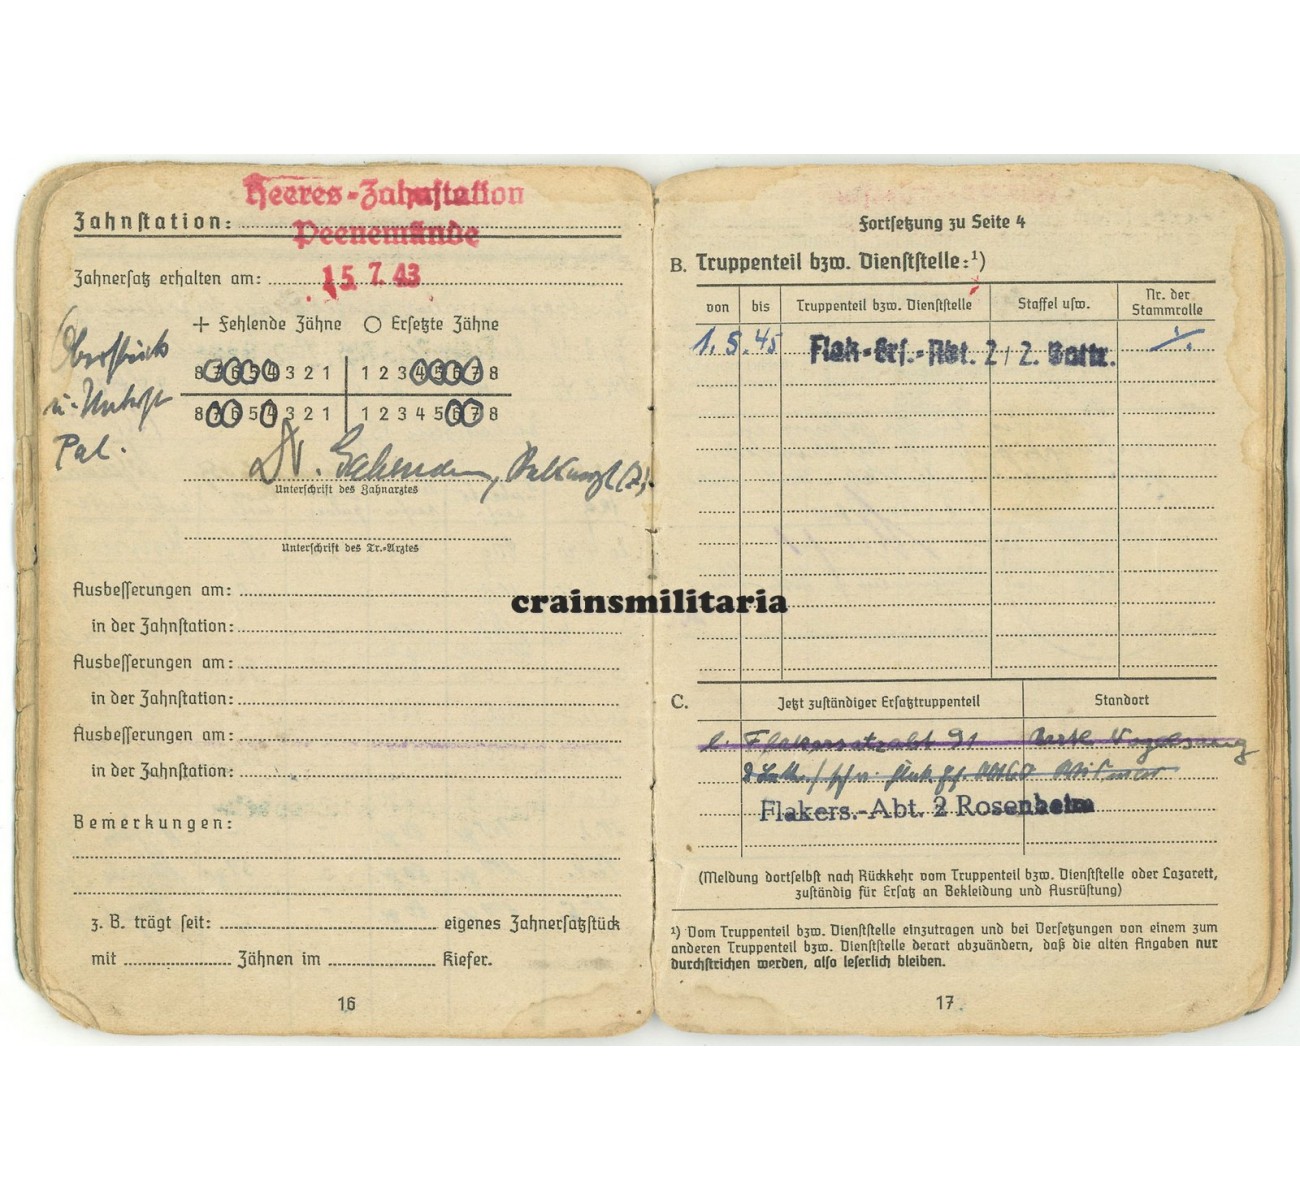 Heeres-Zahnstation
Zahnstation:
Peenemünde
Zahnersatz erhalten am: 15.7.43
+ Fehlende Zähne ○ Ersetzte Zähne
8 7 6 5 4 3 2 1 1 2 3 4 5 6 7 8
8 7 6 5 4 3 2 1 1 2 3 4 5 6 7 8
Pal.
Dr.
Unterschrift des Zahnarztes
Unterschrift des Tr.-Arztes
Ausbesserungen am:
in der Zahnstation:
Ausbesserungen am:
in der Zahnstation:
Ausbesserungen am:
in der Zahnstation:
Bemerkungen:
z. B. trägt seit: eigenes Zahnersatzstück
mit Zähnen im Kiefer.
16
crainsmilitaria
Fortsetzung zu Seite 4
B. Truppenteil bzw. Dienststelle:¹)
von bis Truppenteil bzw. Dienststelle Staffel usw. Nr. der Stammrolle
1.5.45 Flak-Ers.-Abt. 2 / 2. Battr.
C. Jetzt zuständiger Ersatztruppenteil Standort
Flakersatzabt 91
Flakers.-Abt. 2 Rosenheim
(Meldung dortselbst nach Rückkehr vom Truppenteil bzw. Dienststelle oder Lazarett,
zuständig für Ersatz an Bekleidung und Ausrüstung)
¹) Vom Truppenteil bzw. Dienststelle einzutragen und bei Versetzungen von einem zum
anderen Truppenteil bzw. Dienststelle derart abzuändern, daß die alten Angaben nur
durchstrichen werden, also leserlich bleiben.
17